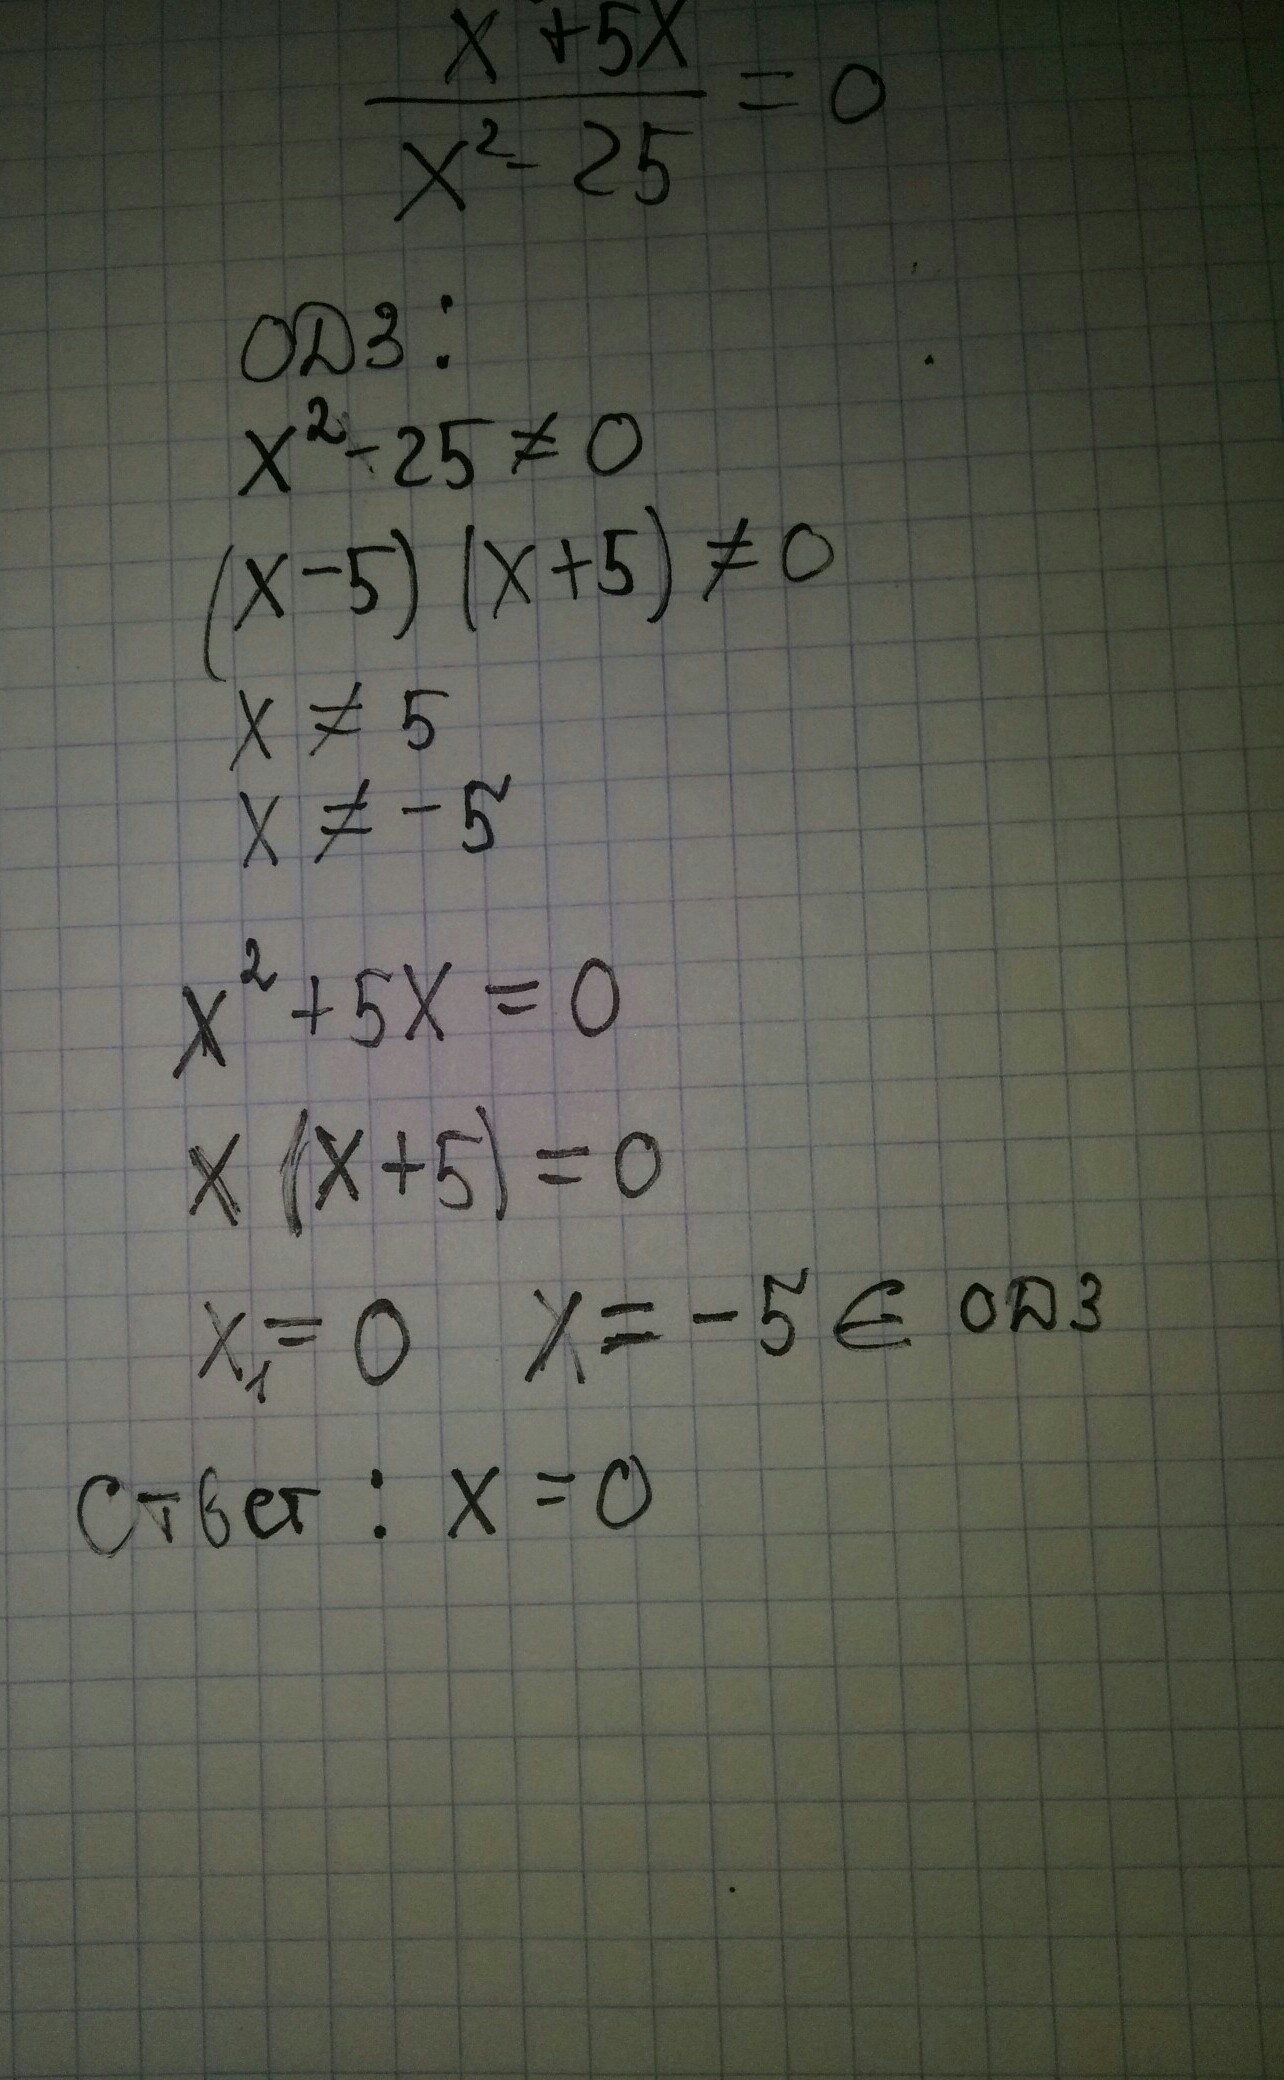 x +5x
x² - 25 = 0
ОДЗ:
x² - 25 ≠ 0
(x-5) (x+5) ≠ 0
x ≠ 5
x ≠ -5
x² + 5x = 0
x (x+5) = 0
x₁ = 0 x = -5 ∈ ОДЗ
Ответ: x = 0